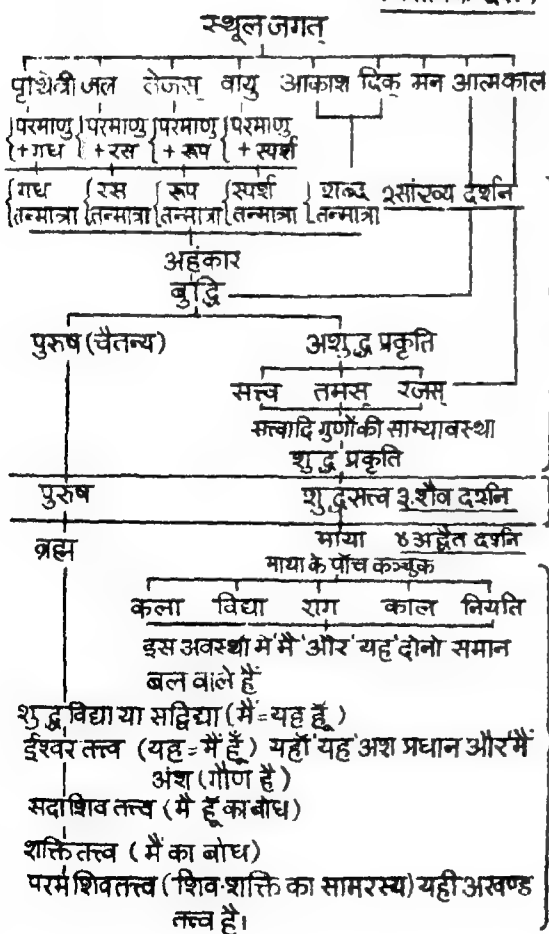 स्थूल जगत्
पृथिवी जल तेजस् वायु आकाश दिक् मन आत्म काल
परमाणु परमाणु परमाणु परमाणु
+गध +रस +रूप +स्पर्श
गध रस रूप स्पर्श शब्द २सांख्य दर्शन
तन्मात्रा तन्मात्रा तन्मात्रा तन्मात्रा तन्मात्रा
अहंकार
बुद्धि
पुरुष (चैतन्य) अशुद्ध प्रकृति
सत्त्व तमस् रजस्
सत्त्वादि गुणों की साम्यावस्था
शुद्ध प्रकृति
पुरुष शुद्धसत्त्व ३.शैव दर्शन
ब्रह्म माया ४अद्वैत दर्शन
माया के पाँच कञ्चुक
कला विद्या राग काल नियति
इस अवस्था में 'मै' और 'यह' दोनो समान
बल वाले हैं
शुद्ध विद्या या सद्विद्या (मैं=यह हूँ)
ईश्वर तत्त्व (यह=मैं हूँ) यहाँ 'यह' अश प्रधान और 'मैं'
अंश (गौण है)
सदाशिव तत्त्व (मै हूँ का बोध)
शक्ति तत्त्व (मैं का बोध)
परम शिवतत्त्व (शिव-शक्ति का सामरस्य) यही अखण्ड
तत्त्व है।